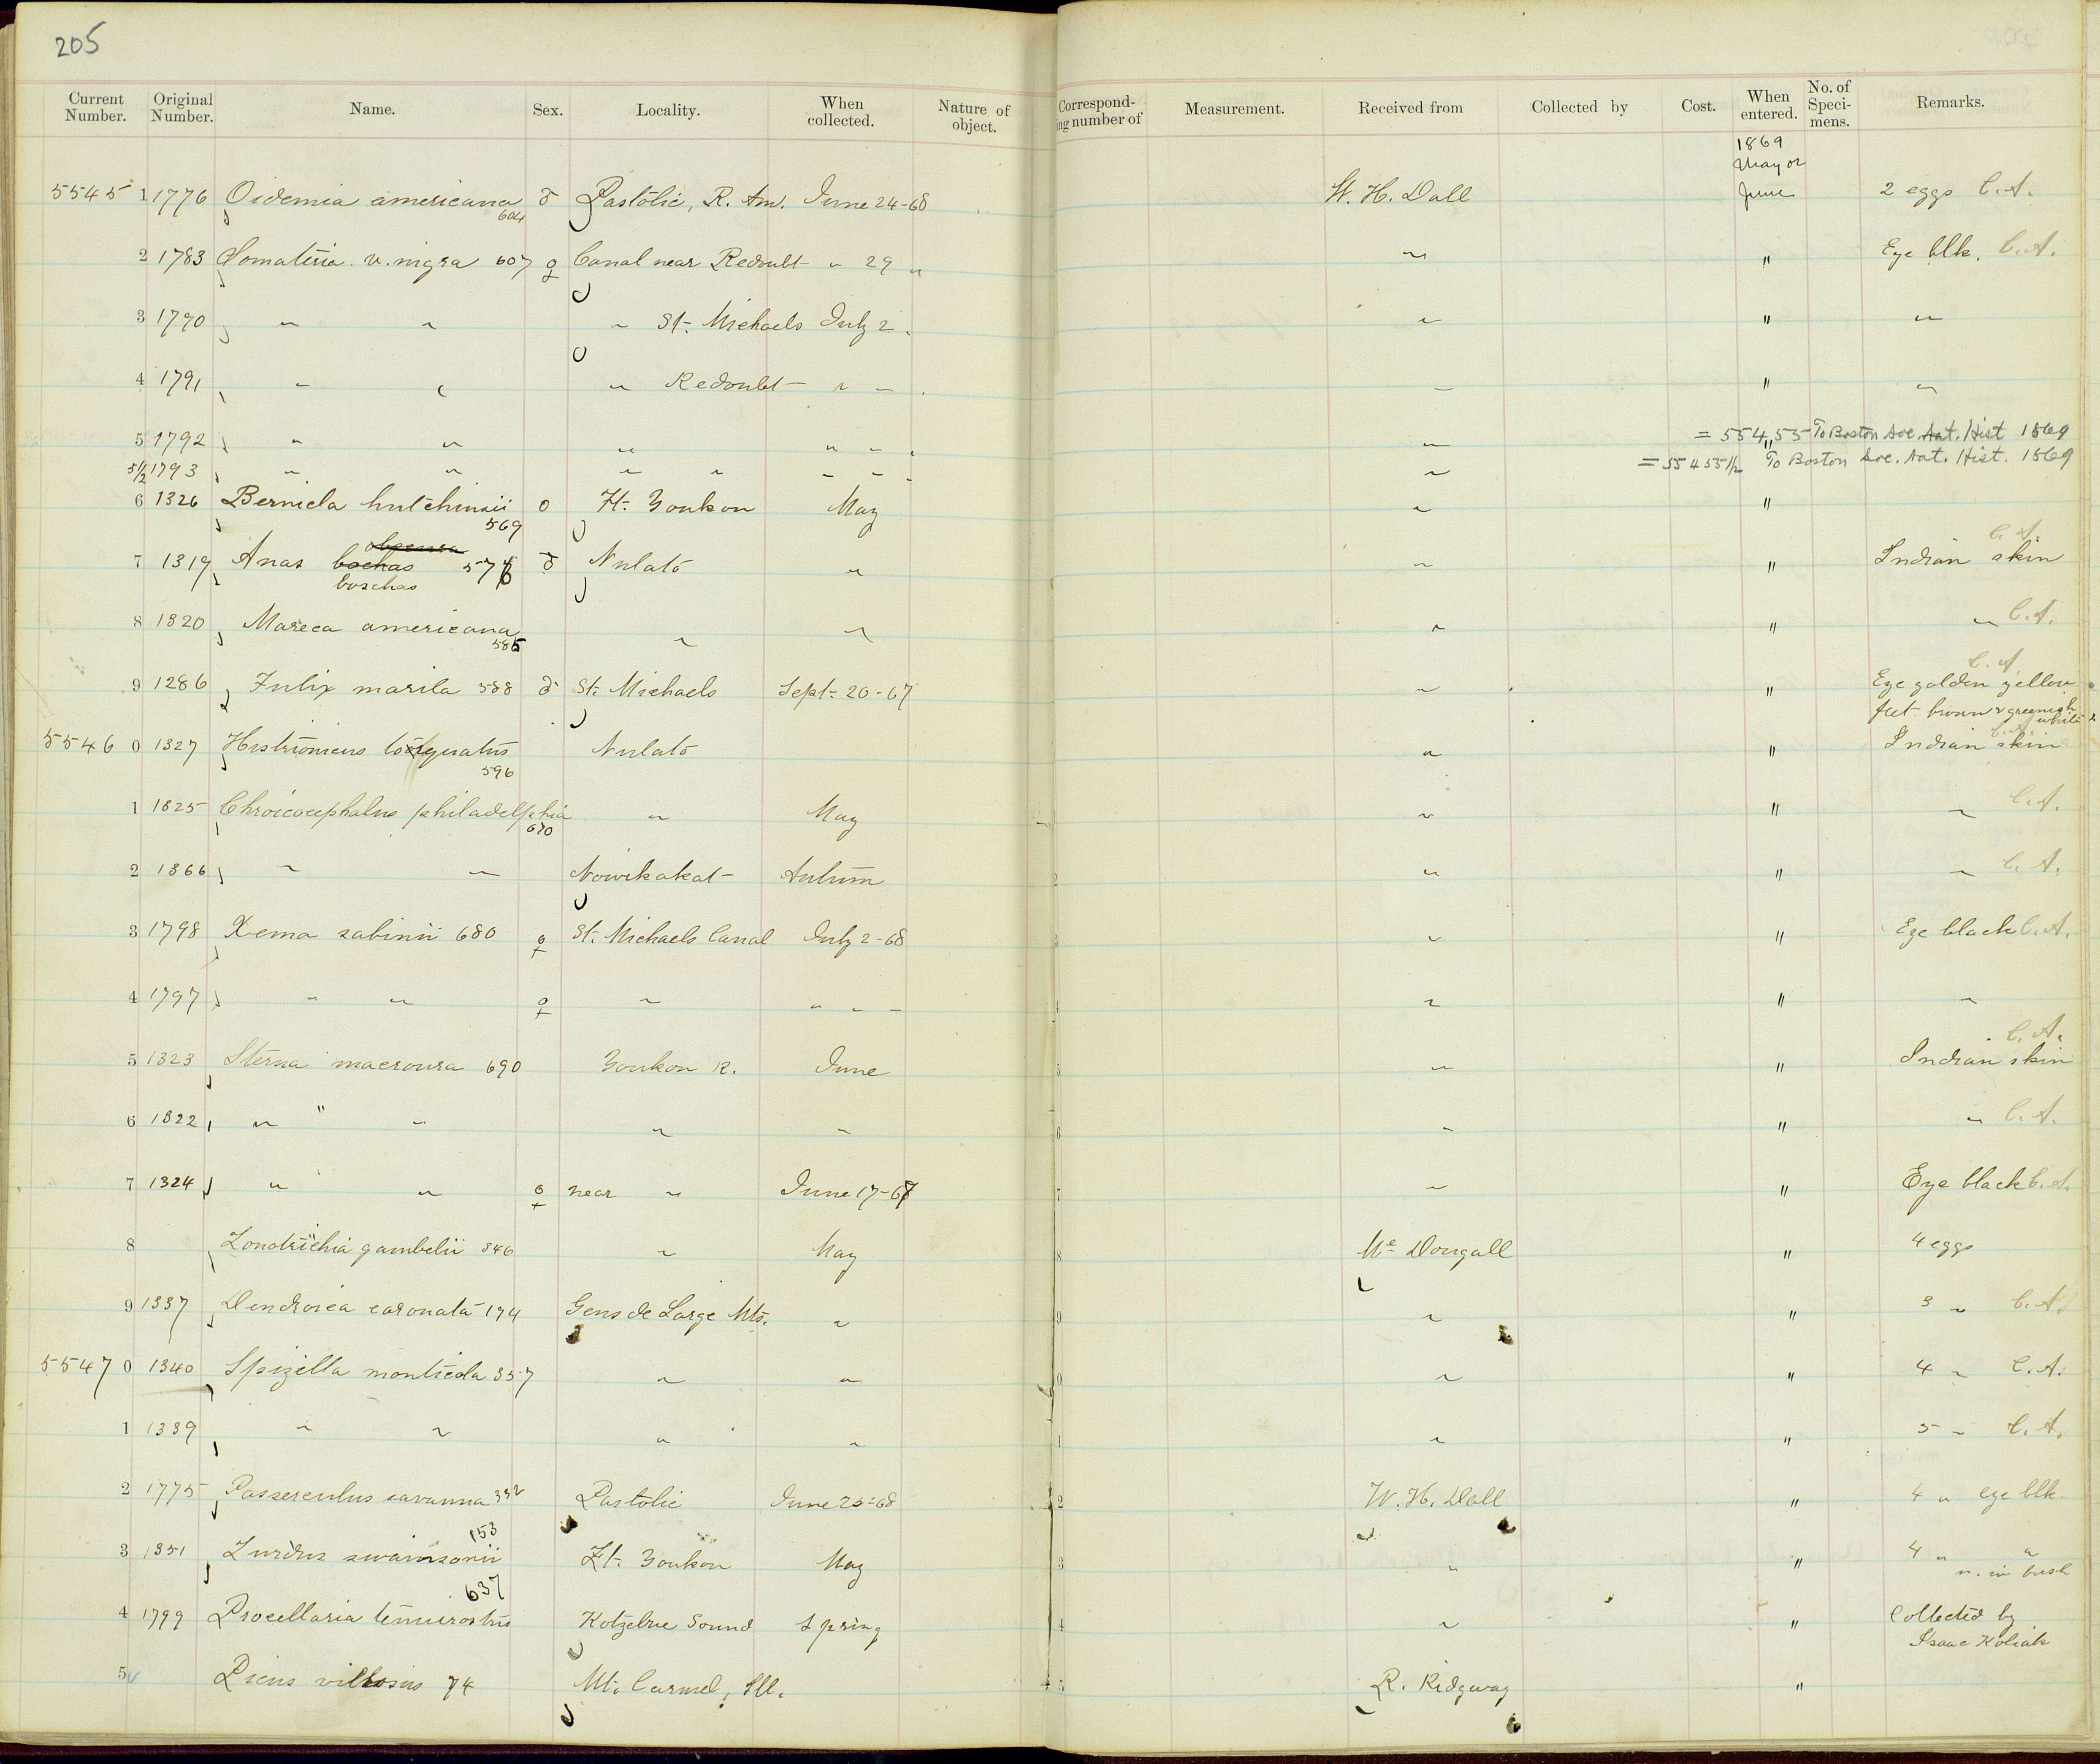 205
Current Number. Original Number. Name. Sex. Locality. When collected. Nature of object. Corresponding number of Measurement. Received from Collected by Cost. When entered. No. of Specimens. Remarks.
1869
May or
5545 1 1776 Oidemia americana ♂ Pastolic, R. Am. June 24-68 W. H. Dall June 2 eggs C.A.
604
2 1783 Somateria v. nigra 607 ♀ Canal near Redoubt " 29 " " " Eye blk. C.A.
3 1790 " " " St. Michaels July 2. " " "
4 1791 " " " Redoubt " " " " "
5 1792 " " " " " " " = 554,55 To Boston Soc. Nat. Hist 1869
5½ 1793 " " " " " " " = 55455½ To Boston Soc. Nat. Hist. 1869
6 1326 Bernicla hutchinsii o Ft. Youkon May " "
569
obscura C.A.
7 1319 Anas bochas 576 ♂ Nulato " " " Indian skin
boschas
8 1320 Mareca americana " " " " " C.A.
585
C.A.
9 1286 Fulix marila 588 ♂ St. Michaels Sept. 20-67 " " Eye golden yellow
feet brown & greenish
white
5546 0 1327 Histrionicus torquatus Nulato " " Indian skin
596
1 1325 Chroicocephalus philadelphia " May " " " C.A.
670
2 1366 " " Nowikakat Autum " " " C.A.
3 1798 Xema sabinii 680 ♀ St. Michaels Canal July 2-68 " " Eye black C.A.
4 1797 " " ♀ " " " " " " "
C.A.
5 1323 Sterna macroura 690 Youkon R. June " " Indian skin
6 1322 " " " " " " " " C.A.
7 1324 " " ♀ near " June 17-67 " " Eye black C.A.
8 Zonotrichia gambelii 346 " May Mc Dougall " 4 eggs
9 1337 Dendroica coronata 194 Gens de Large Mts. " " " 3 " C.A.
5547 0 1340 Spizella monticola 357 " " " " 4 " C.A.
1 1339 " " " " " " 5 " C.A.
2 1775 Passerculus savanna 332 Pastolic June 25-68 W. H. Dall " 4 " eye blk.
153
3 1351 Turdus swainsonii Ft. Youkon May " " 4 " "
n. in bush
637
4 1799 Procellaria tenuirostris Kotzebue Sound Spring " " Collected by
Isaac Koliak
5 Picus villosus 74 Mt. Carmel, Ill. R. Ridgway "